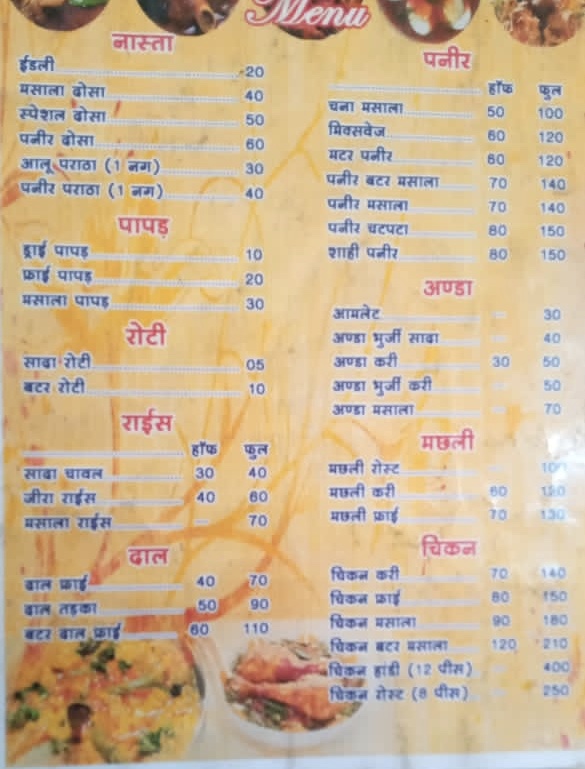 Menu
नास्ता
ईडली 20
मसाला ढोसा 40
स्पेशल ढोसा 50
पनीर ढोसा 60
आलू पराठा (1 नग) 30
पनीर पराठा (1 नग) 40
पापड़
ड्राई पापड़ 10
फ्राई पापड़ 20
मसाला पापड़ 30
रोटी
सादा रोटी 05
बटर रोटी 10
राईस
हॉफ फुल
सादा चावल 30 40
जीरा राईस 40 60
मसाला राईस 70
दाल
दाल फ्राई 40 70
दाल तड़का 50 90
बटर दाल फ्राई 60 110
पनीर
हॉफ फुल
चना मसाला 50 100
मिक्सवेज 60 120
मटर पनीर 60 120
पनीर बटर मसाला 70 140
पनीर मसाला 70 140
पनीर चटपटा 80 150
शाही पनीर 80 150
अण्डा
आमलेट 30
अण्डा भुर्जी सादा 40
अण्डा करी 30 50
अण्डा भुर्जी करी 50
अण्डा मसाला 70
मछली
मछली रोस्ट 100
मछली करी 60 120
मछली फ्राई 70 130
चिकन
चिकन करी 70 140
चिकन फ्राई 80 150
चिकन मसाला 90 180
चिकन बटर मसाला 120 210
चिकन हांडी (12 पीस) 400
चिकन रोस्ट (8 पीस) 250